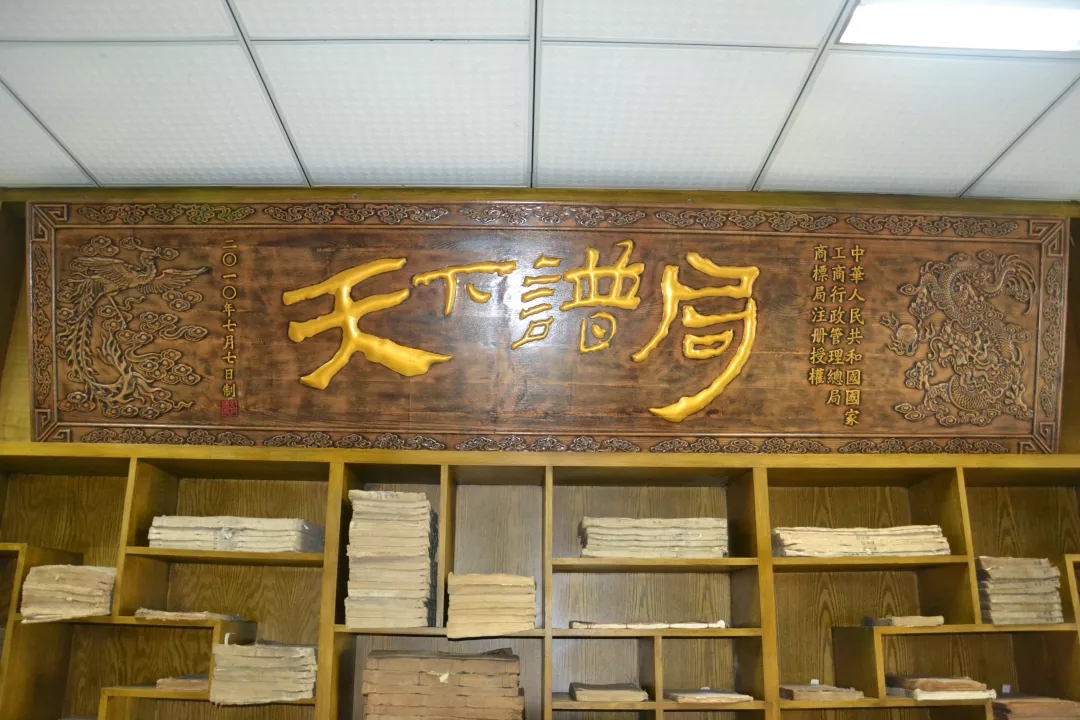 中華人民共和國國家
工商行政管理總局
商標局注册授權
天下譜局
二〇一〇年七月七日制